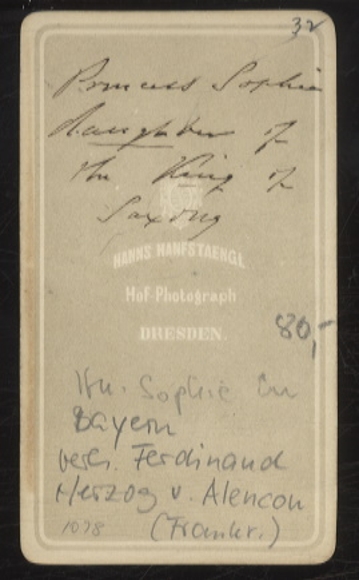 32
Princess Sophie
daughter of
the King of
Saxony
HANNS HANFSTAENGL
Hof-Photograph
DRESDEN.
80,-
Sophie in
Bayern
verh. Ferdinand
Herzog v. Alencon
(Frankr.)
1078